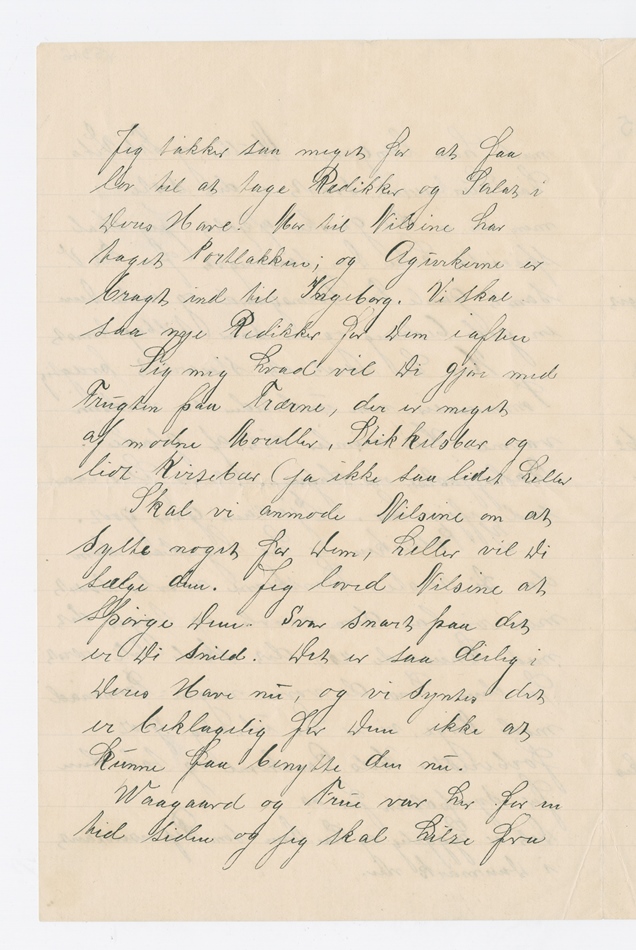 Jeg takker saa meget for at faa
lov til at tage Redikker og Salat i
Deres Have. Mor til Nilsine har
taget Portlakken; og Agurkerne er
bragt ind til Ingeborg. Vi skal
saa nye Redikker for Dem iaften
Sig mig hvad vil Di gjøre med
Frugten paa Trærne, der er meget
af modne Moreller, Stikkelsbær og
lidt Kirsebær (ja ikke saa lidet heller
Skal vi anmode Nilsine om at
sylte noget for Dem, heller vil Di
sælge den. Jeg loved Nilsine at
Spørge Dem. Svar snart paa det
er Di snild. Det er saa deilig i
Deres Have nu, og vi syntes det
er beklagelig for Dem ikke at
kunne faa benytte den nu.
Waagaard og Frue var her for en
tid siden og jeg skal hilse fra